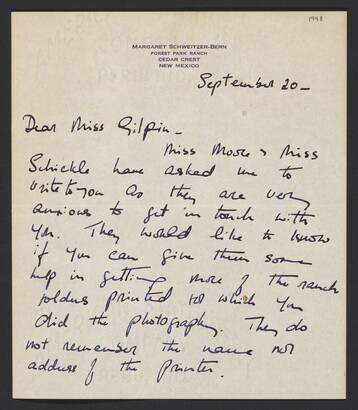 1948
MARGARET SCHWEITZER-BERN
FOREST PARK RANCH
CEDAR CREST
NEW MEXICO
September 20-
Dear Miss Gilpin-
Miss Moore & Miss
Schickle have asked me to
write to you as they are very
anxious to get in touch with
you. They would like to know
if you can give them some
help in getting more of the ranch
folders printed for which you
did the photography. They do
not remember the name nor
address of the printer.